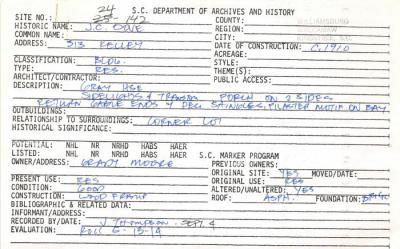 24
S.C. DEPARTMENT OF ARCHIVES AND HISTORY
SITE NO.: 25-142 COUNTY: WILLIAMSBURG
HISTORIC NAME: J.C. REGION:
COMMON NAME: CITY:
ADDRESS: 313 KELLEY DATE OF CONSTRUCTION: C.1910
ACREAGE:
CLASSIFICATION: BLDG. STYLE:
TYPE: RES. THEME(S):
ARCHITECT/CONTRACTOR: PUBLIC ACCESS:
DESCRIPTION: GRAY HSE
SIDELIGHTS & TRANSOM PORCH ON 2 SIDES
RETURN GABLE ENDS & DEC SHINGLES, PILASTER MOTIF ON BAY
OUTBUILDINGS:
RELATIONSHIP TO SURROUNDINGS: CORNER LOT
HISTORICAL SIGNIFICANCE:
POTENTIAL: NHL NR NRHD HABS HAER
LISTED: NHL NR NRHD HABS HAER S.C. MARKER PROGRAM
OWNER/ADDRESS: GRADY MOORE PREVIOUS OWNERS:
ORIGINAL SITE: YES MOVED/DATE:
PRESENT USE: RES ORIGINAL USE: RES
CONDITION: GOOD ALTERED/UNALTERED: YES
CONSTRUCTION: WOOD FRAME ROOF: ASPH. FOUNDATION:
BIBLIOGRAPHIC & RELATED DATA:
INFORMANT/ADDRESS:
RECORDED BY/DATE: J THOMPSON SEPT. 4
EVALUATION: ROLL 6-13-14